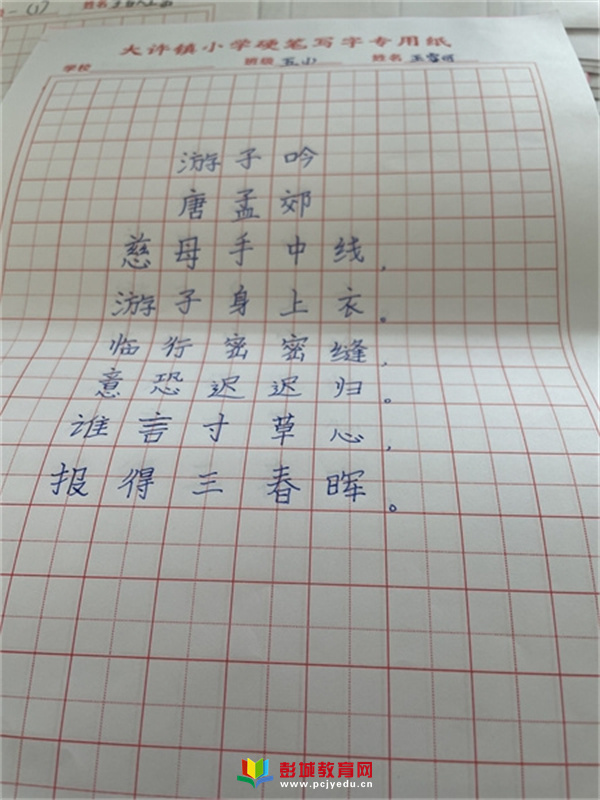 (1) 姓名
大许镇小学硬笔写字专用纸
学校 班级 五小 姓名 王雪
游子吟
唐孟郊
慈母手中线,
游子身上衣。
临行密密缝,
意恐迟迟归。
谁言寸草心,
报得三春晖。
彭城教育网
www.pcjyedu.cn